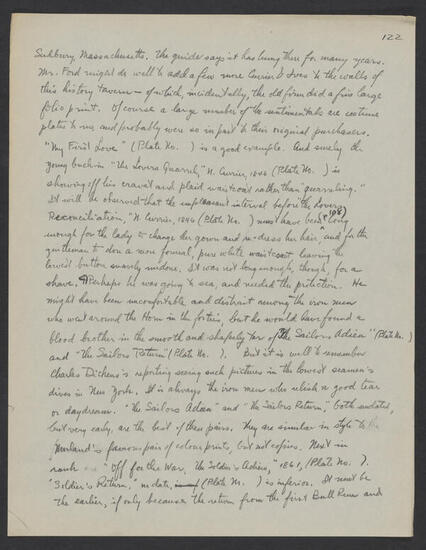 122
Sudbury, Massachusetts. The guide says it has hung there for many years.
Mr. Ford might do well to add a few more Currier & Ives to the walls of
this history tavern - of which, incidentally, the old firm did a fine large
folio print. Of course a large number of the sentimentals are costume
plates to us, and probably were so in part to their original purchasers.
"My First Love" (Plate No. ) is a good example. And surely the
young buck in "The Lovers Quarrel," N. Currier, 1846 (Plate No. ) is
showing off his cravat and plaid waistcoat rather than quarreling."
It will be observed that the unpleasant interval before the Lovers
Reconciliation," N. Currier, 1846 (Plate No. ) must have been long
enough for the lady to change her gown and re-dress her hair, and for the
gentleman to don a more formal, pure white waistcoat leaving the
lowest button smartly undone. It was not long enough, though, for a
shave. Perhaps he was going to sea, and needed the protection. He
might have been uncomfortable and distrait among the iron men
who went around the Horn in the forties, but he would have found a
blood brother in the smooth and shapely tar of "The Sailors Adieu" (Plate No. )
and "The Sailors Return" (Plate No. ). But it is well to remember
Charles Dickens's reporting seeing such pictures in the lowest seamen's
dives in New York. It is always the iron men who relish a good tear
or daydream. "The Sailors Adieu" and "The Sailors Return," both undated,
but very early, are the best of these pairs. They are similar in style to
Morland's famous pair of colour prints, but not copies. Next in
rank "Off for the War, The Soldier's Adieu," 1861, (Plate No. ).
"Soldier's Return," no date, (Plate No. ) is inferior. It must be
the earlier, if only because the return from the first Bull Run and